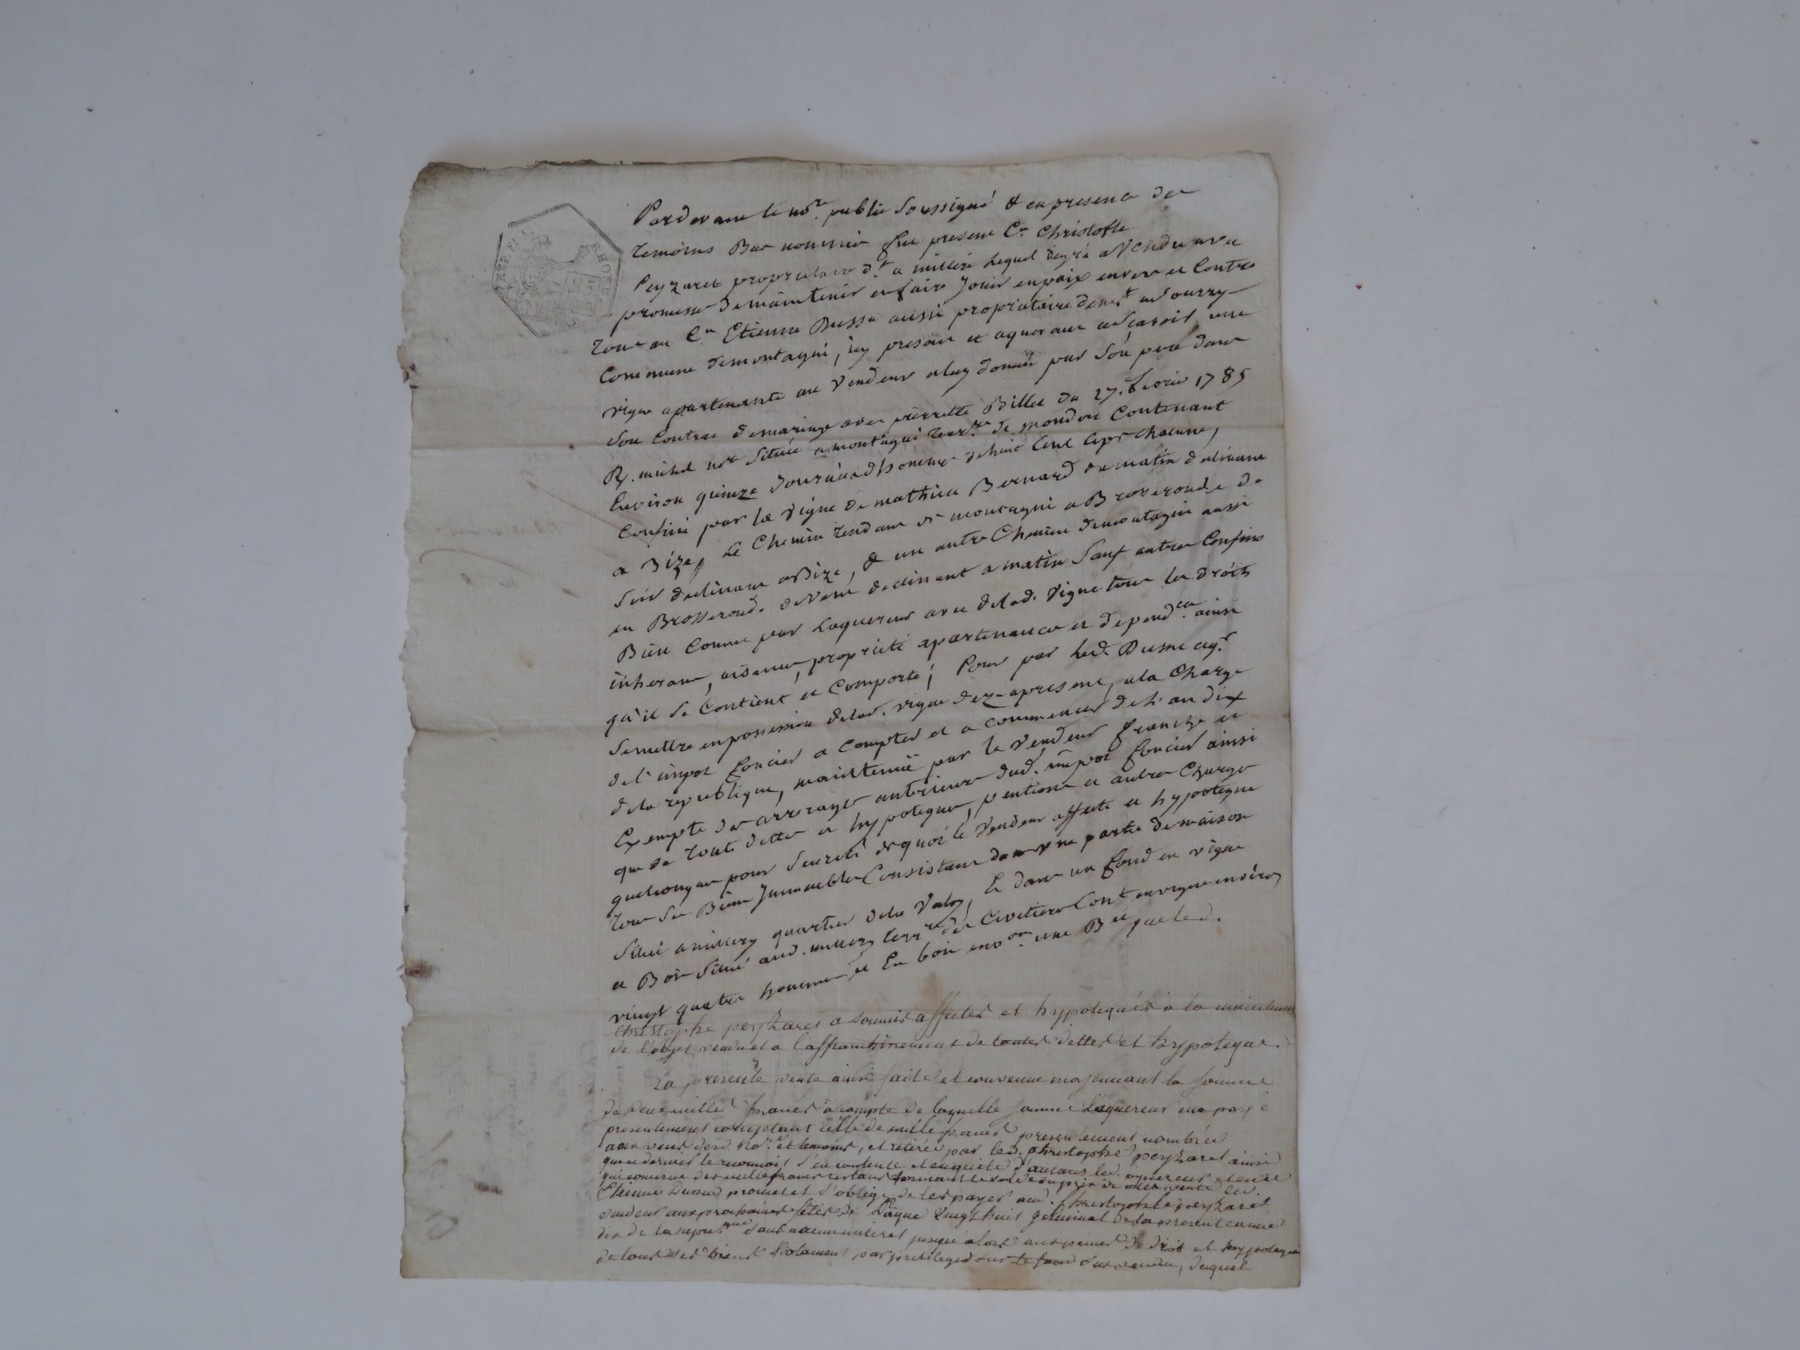 RHONE
Pardevant le no.re public Soussigné & en presence des
temoins Bas nommés fut present C.n Christofle
Peyzaret propriétaire d.t a millery Lequel degré a Vendu avec
promesse de maintenir en faire Jouir en paix envers et Contre
tous au C.n Etienne Dussu aussi propriétaire dem.t a Sourzy
Commune de montagni, icy present et aquereur asçavoir une
vigne apartenante au Vendeur a luy donnée par Son pere dans
Son Contrat de mariage avec pierrette Billet du 27. fevrier 1785
R. michel no.re Située a montagni terr.re de mondon Contenant
Environ quinze Journées d'hommes de huit Cent Ceps chacune,
Confiné par la vigne de mathieu Bernard de matin declinant
a Bize, Le Chemin tendant de montagni a Brosseronde de
Soir declinant a Bize, & un autre Chemin de montagni aussi
en Brosseronde de Vent declinant a matin Sauf autres Confins
Bien Connus par Laquereur avec de lad. vigne tous les droits
inherans, aisances, propriété apartenances et dépend.ces ainsi
qu'il Se Contient et Comporte; Pour par led. Dussu aq.r
Se mettre en possession de lad. vigne dez apresent, a la Charge
de l'impot foncier a Compter et a commencer de L'an dix
de la republique, maintenüe par le Vendeur franche et
Exempte des arrerages anterieurs dud. impot foncier ainsi
que de toute dettes et hypoteques, pentions et autres Charges
quelconques pour Seureté de quoi le Vendeur affecte et hypoteque
tous Ses Biens Immeubles Consistant dans une partie de maison
Situé a millery quartier de la Valois, Et dans un fond en vigne
et Bois Situé aud. millery terr.re des Civetiere Cont. en vigne environ
vingt quatre hommées et En bois env.on une B.ée que led.
Christophe peyzaret a soumis affectés et hypotequés à la maintenue
de l'objet vendu et a l'affranchissement de toutes dettes et hypoteque.
La presente vente ainsi faite et convenue moyennant la somme
de deux mille francs a compte de laquelle somme L'aquereur en a payé
presentement comptant celle de mille francs presentement nombrée
aux veus desd. No.re et temoins, et retirée par led. christophe peyzaret ainsi
que ce dernier le reconnoit s'en contente et en quitte d'autant led. aquereur et en ce
qui concerne des mille francs restans formant le solde du prix de cette vente led.
Etienne Dussu promet et s'oblige de les payer aud. christophe peyzaret
vendeur aux prochaines fêtes de Pâque vingt huit germinal de la presente année
dix de la repu.que sans aucun interet jusqu'alors aux peines de droit et hypoteque
de tous ses biens Notament par privilege sur le fond sus vendu, duquel